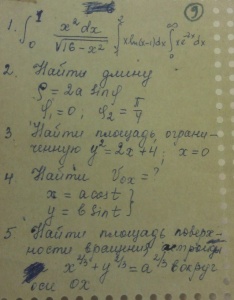 9
1. ∫₀¹ x²dx/√(16-x²); ∫₂³ x ln(x-1)dx; ∫₀^∞ xe⁻²ˣdx
2. Найти длину
ρ = 2a sinφ
φ₁ = 0; φ₂ = π/4
3 Найти площадь ограни-
ченную y² = 2x + 4; x = 0
4 Найти V₀ₓ = ?
x = a cos t }
y = b sin t }
5. Найти площадь поверх-
ности вращения астроиды
x^2/3 + y^2/3 = a^2/3 вокруг
оси OX